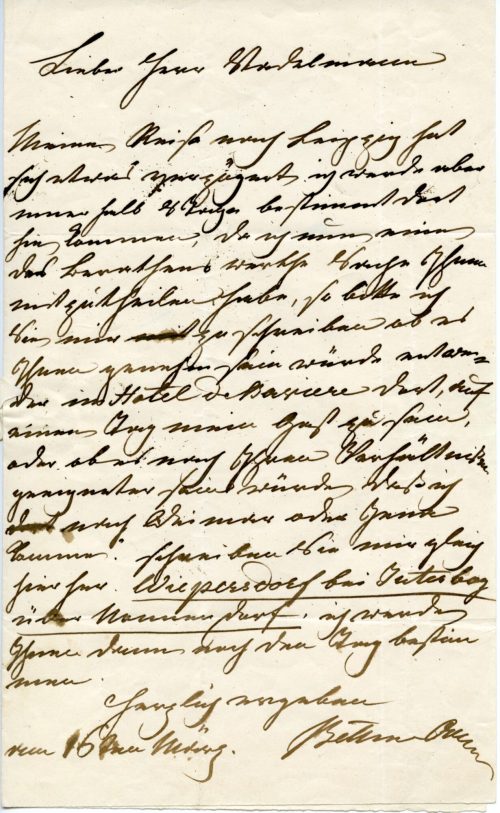 Lieber Herr Stadelmann
Meine Reise nach Leipzig hat
sich etwas verzögert ich werde aber
inner halb 8 Tage bestimmt dort
hin kommen, da ich nun eine
des Berathens werthe Sache Ihnen
mitzutheilen habe, so bitte ich
Sie mir zu schreiben ob es
Ihnen genehm sein würde entwe-
der im Hotel de Baviere dort, auf
einen Tag mein Gast zu sein,
oder ob es nach Ihren Verhältnissen
geeigneter sein würde daß ich
nach Weimar oder Jena
komme. schreiben Sie mir gleich
hier her. Wiepersdorf bei Jüterbog
über Nonnendorf. ich werde
Ihnen dann noch den Tag bestim
men.
Herzlich ergeben
den 16ten März. Bettine Arnim